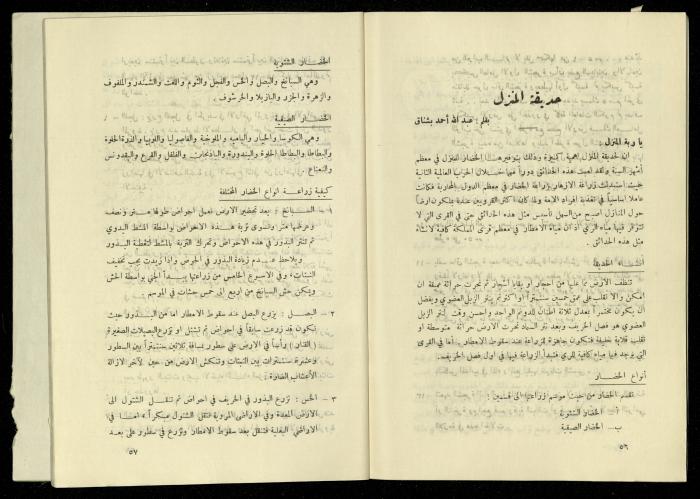 حديقة المنزل
بقلم : عبد الله أحمد بشناق
يا ربة المنزل :
ان لحديقة المنزل اهمية كبيرة وذلك بتوفيرها الخضار للمنزل في معظم
أشهر السنة ولقد لعبت هذه الحدائق دوراً هاماً خلال الحرب العالمية الثانية
حيث استبدلت زراعة الازهار بزراعة الخضار في معظم الدول المحاربة فكانت
عاملا اساسياً في تغذية افراد الامة ولما كان اكثر القرويين عندنا يملكون ارضاً
حول المنازل اصبح من السهل تأسيس مثل هذه الحدائق حتى في القرى التي لا
تتوفر فيها مياه الري اذ ان مياه الامطار في معظم قرى المملكة كافية لانشاء
مثل هذه الحدائق .
انشاء الحديقة
تنظف الارض مما عليها من احجار او بقايا أشجار ثم تحرث حراثة عميقة ان
امكن والا تقلب على عمق خمسين سنتيمتراً او اكثر ثم ينثر الزبل العضوي ويفضل
أن يكون مختمراً بمعدل ثلاثة اطنان للدونم الواحد واحسن وقت لنثر الزبل
العضوي هو فصل الخريف وبعد نثر السماد تحرث الارض حراثة متوسطة او
تقلب قلابة خفيفة فتكون جاهزة للزراعة عند سقوط الامطار . أما في القرى
التي يوجد فيها مياه كافية للري فتبدأ الزراعة فيها في اول فصل الخريف .
أنواع الخضار
تقسم الخضار من حيث موسم زراعتها الى قسمين :
الخضار الشتوية
ب ـ الخضار الصيفية
٥٦
الخضار الشتوية
وهي السبانخ والبصل والخس والفجل والثوم واللفت والشمندر والملفوف
والزهرة والجزر والبازيلا والخرشوف .
الخضار الصيفية
وهي الكوسا والخيار والبامية والملوخية والفاصوليا واللوبيا والذرة الحلوة
والبطاطا والبطاطا الحلوة والبندورة والباذنجان والفلفل والقرع والبقدونس
والنعناع .
كيفية زراعة انواع الخضار المختلفة
١ ـ السبانخ : بعد تحضير الارض تعمل احواض طولها متر ونصف
وعرضها متر وتسوى تربة هذه الاحواض بواسطة المشط اليدوي
ثم تنثر البذور في هذه الاحواض وتحرك التربة بالمشط لتغطية البذور
ويلاحظ عدم زيادة البذور في الحوض واذا زيدت يجب تخفيف
النبتات وفي الاسبوع الخامس من زراعتها يبدأ الجني بواسطة الحش
ويمكن حش السبانخ من اربع الى خمس حشات في الموسم .
٢ ـ البصل : يزرع البصل عند سقوط الامطار اما من البذور حيث
تكون قد زرعت سابقاً في احواض ثم تشتل او تزرع البصيلات الصغيرة
( القنار ) رأساً في الارض على سطور بمسافة ثلاثين سنتمتراً بين السطور
وعشرة سنتمترات بين النبتات وتنكش الارض من حين لآخر لازالة
الأعشاب الضارة .
٣ ـ الخس : تزرع البذور في الخريف في احواض ثم تنقل الشتول الى
الارض المعدة وفي الاراضي المروية تنقل الشتول مبكراً اما في
الاراضي البعلية فتنقل بعد سقوط الامطار وتزرع في سطور على بعد
٥٧